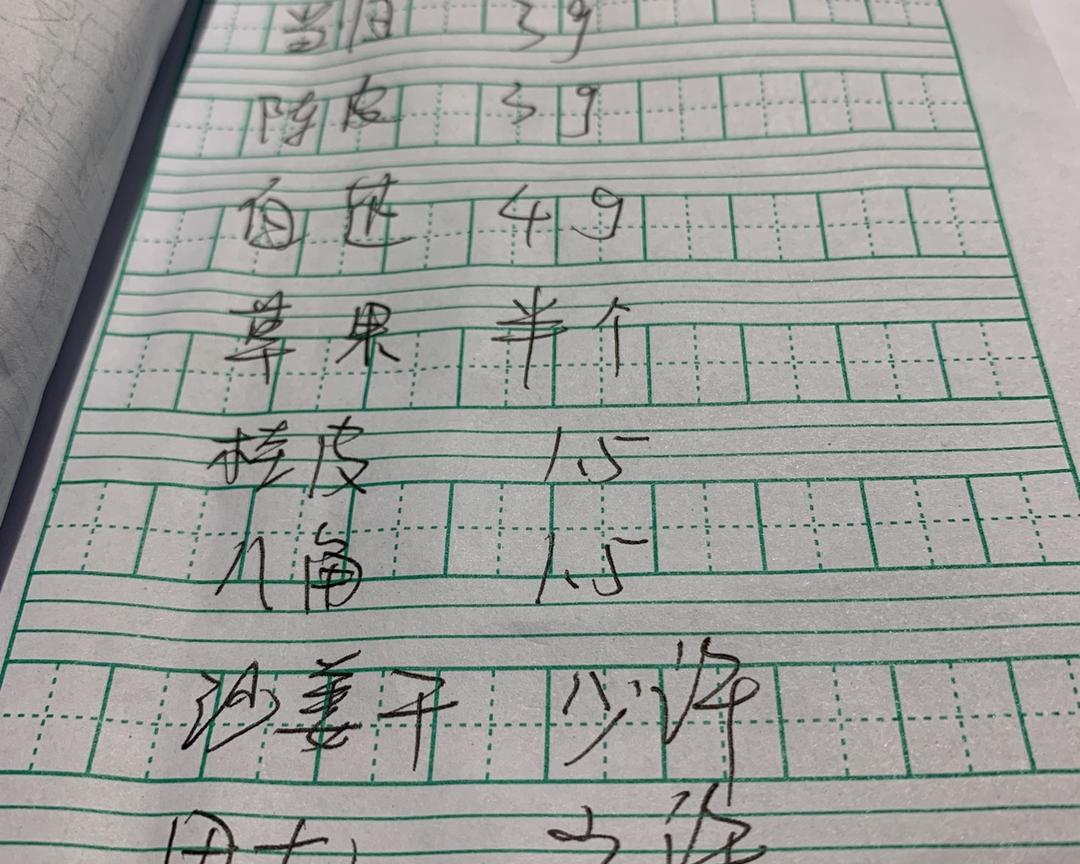 当归 3g
陈皮 3g
白芷 4g
草果 半个
桂皮 1.5
八角 1.5
沙姜干 少许
少许